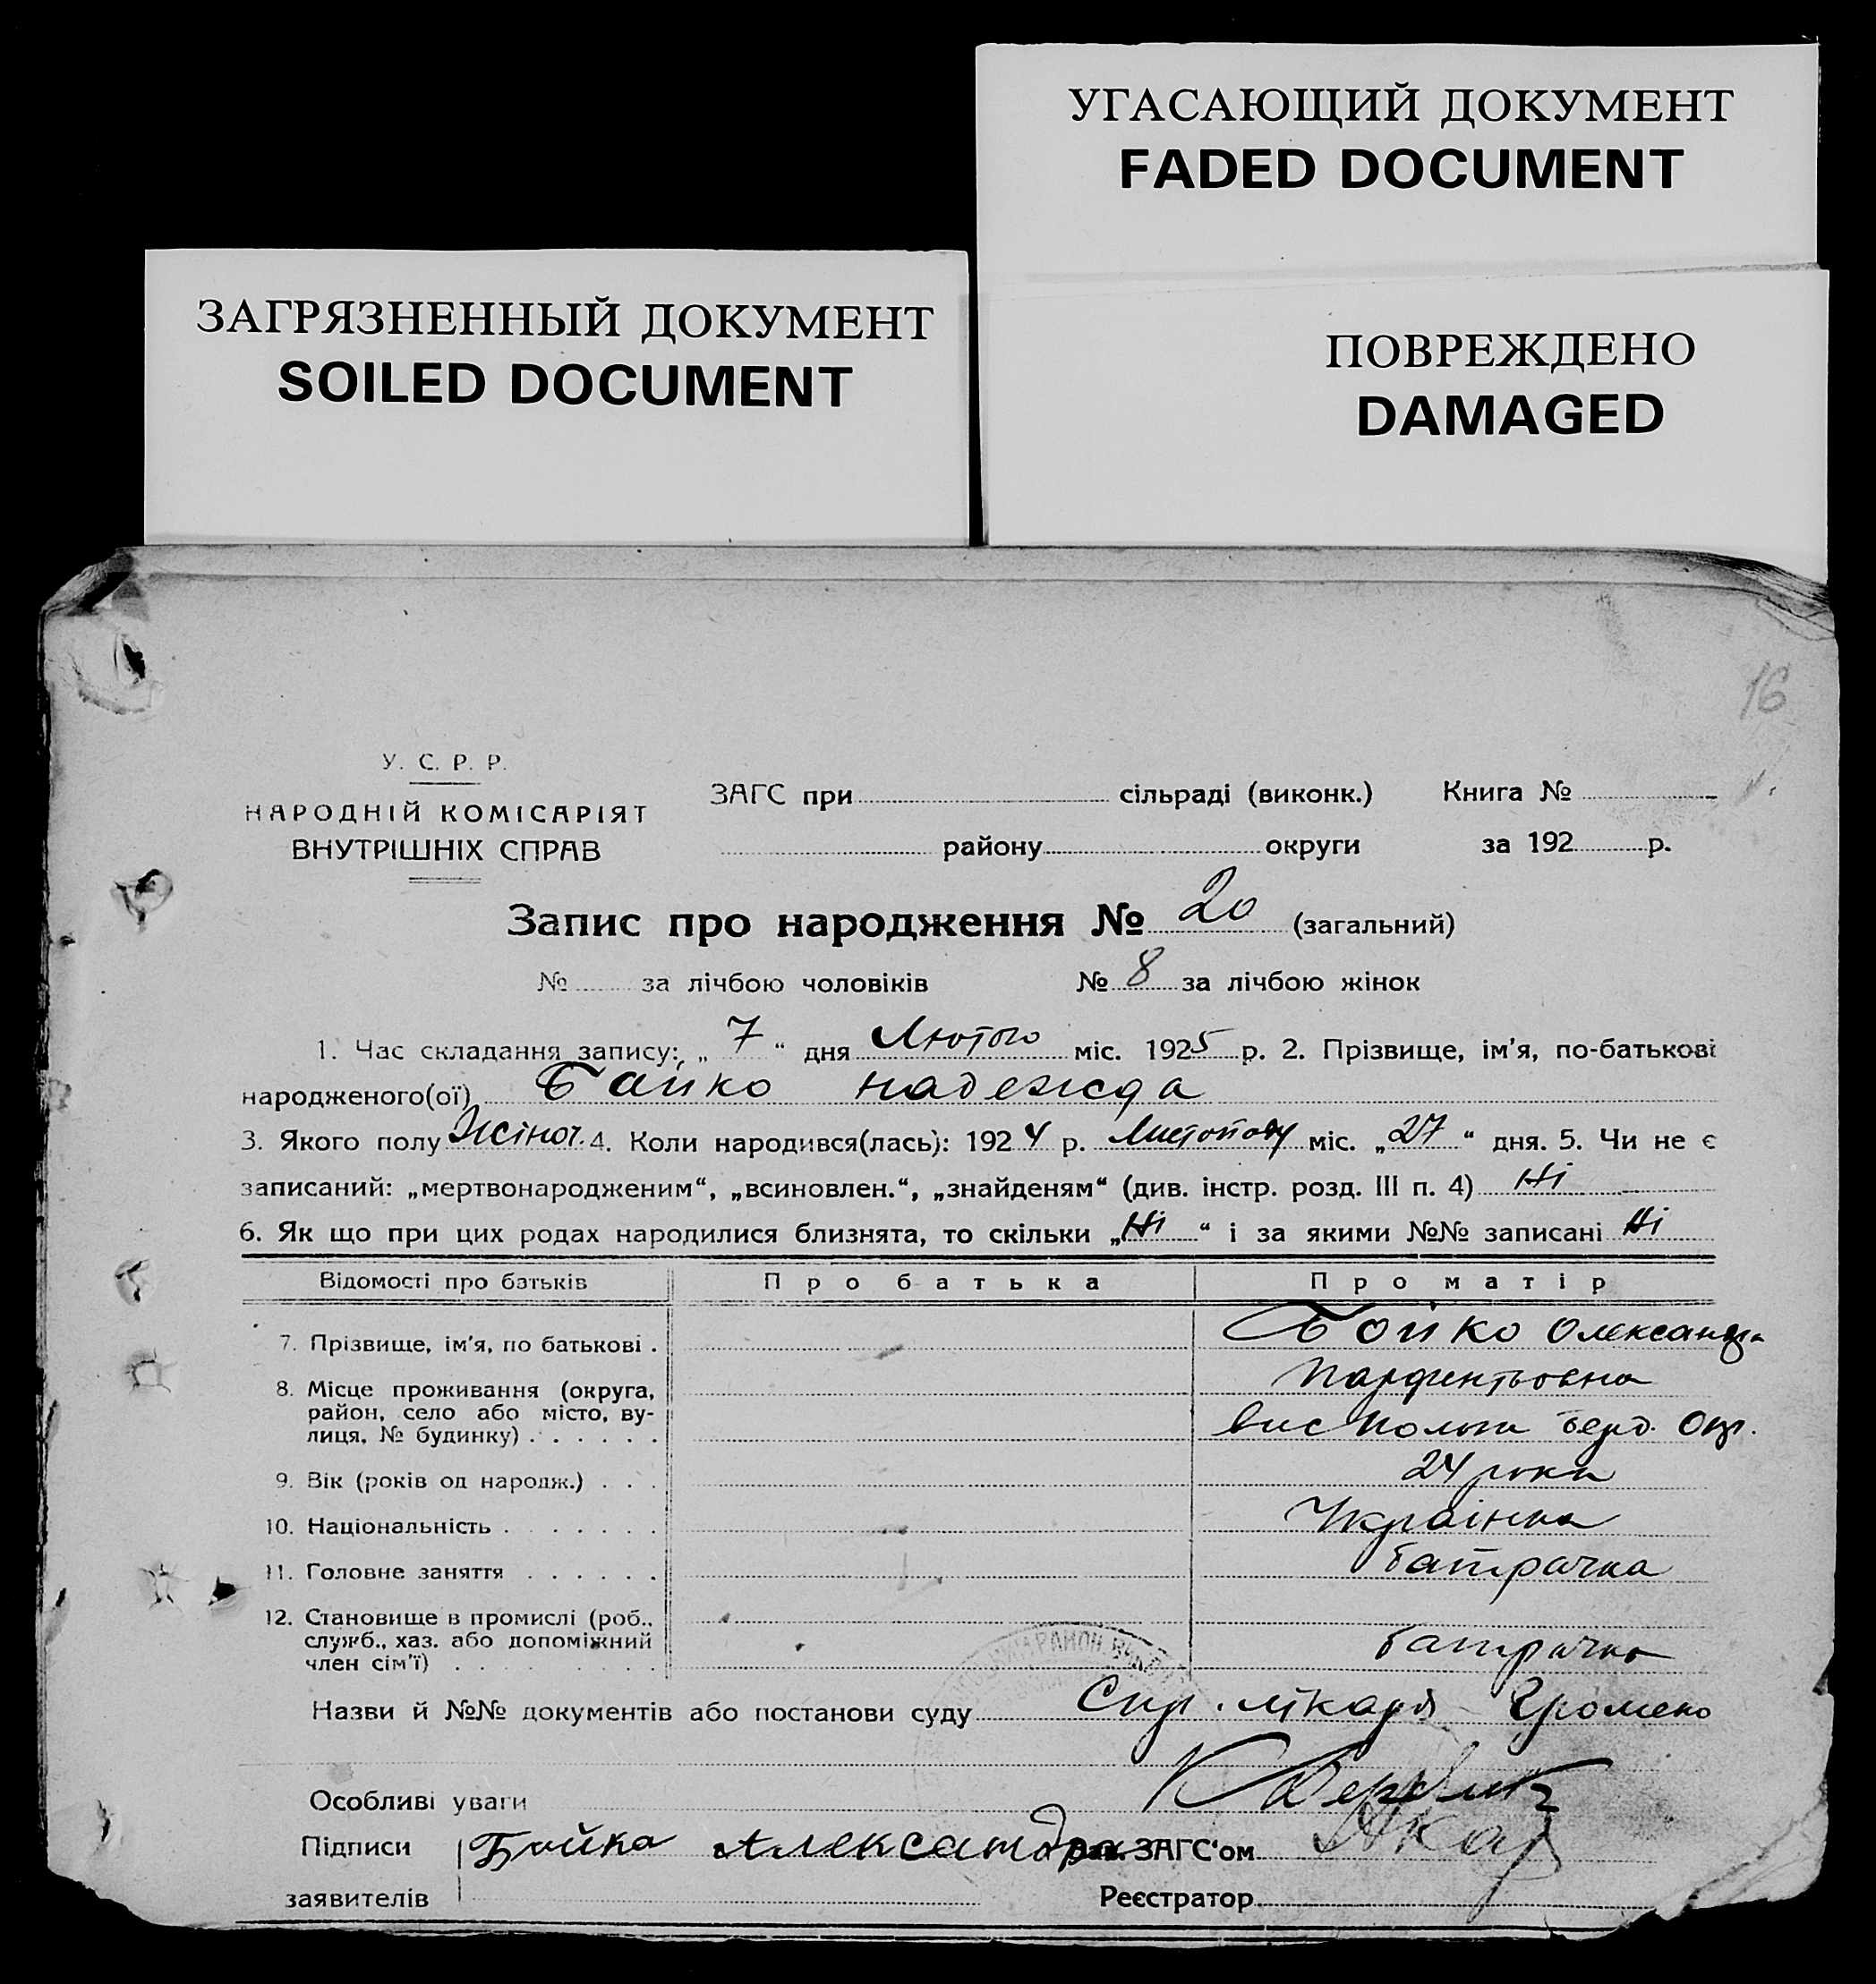 УГАСАЮЩИЙ ДОКУМЕНТ
FADED DOCUMENT
ЗАГРЯЗНЕННЫЙ ДОКУМЕНТ
SOILED DOCUMENT
ПОВРЕЖДЕНО
DAMAGED
16
У. С. Р. Р.
НАРОДНІЙ КОМІСАРІЯТ
ВНУТРІШНІХ СПРАВ
ЗАГС при сільраді (виконк.) Книга №
району округи за 192 р.
Запис про народження № 20 (загальний)
№ за лічбою чоловіків № 8 за лічбою жінок
1. Час складання запису: „ 7 “ дня Лютого міс. 1925 р. 2. Прізвище, ім'я, по-батькові
народженого(ої) Бойко надежда
3. Якого полу жіноч. 4. Коли народився(лась): 1924 р. Листопаду міс. „27“ дня. 5. Чи не є
записаний: „мертвонародженим“, „всиновлен.“, „знайденям“ (див. інстр. розд. III п. 4) Ні
6. Як що при цих родах народилися близнята, то скільки „Ні“ і за якими №№ записані Ні
Відомості про батьків Про батька Про матір
7. Прізвище, ім'я, по батькові . Бойко Олександра
Парфентьовна
8. Місце проживання (округа,
район, село або місто, ву-
лиця, № будинку) . . . . . . Берд. Окр.
9. Вік (років од народж.) . . . 24 роки
10. Національність . . . . . . . Українка
11. Головне заняття . . . . . . батрачка
12. Становище в промислі (роб.,
служб., хаз. або допоміжний
член сім'ї) . . . . . . . . . батрачка
Назви й №№ документів або постанови суду Спр. лікаря Громеко
Особливі уваги
Підписи Бойко Александра ЗАГС'ом
заявителів Реєстратор